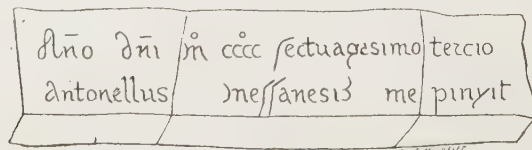 An̄o dn̄i m̊ cc̊c̊c ſectuagesimo tercio
antonellus meſſanesis me pinxit